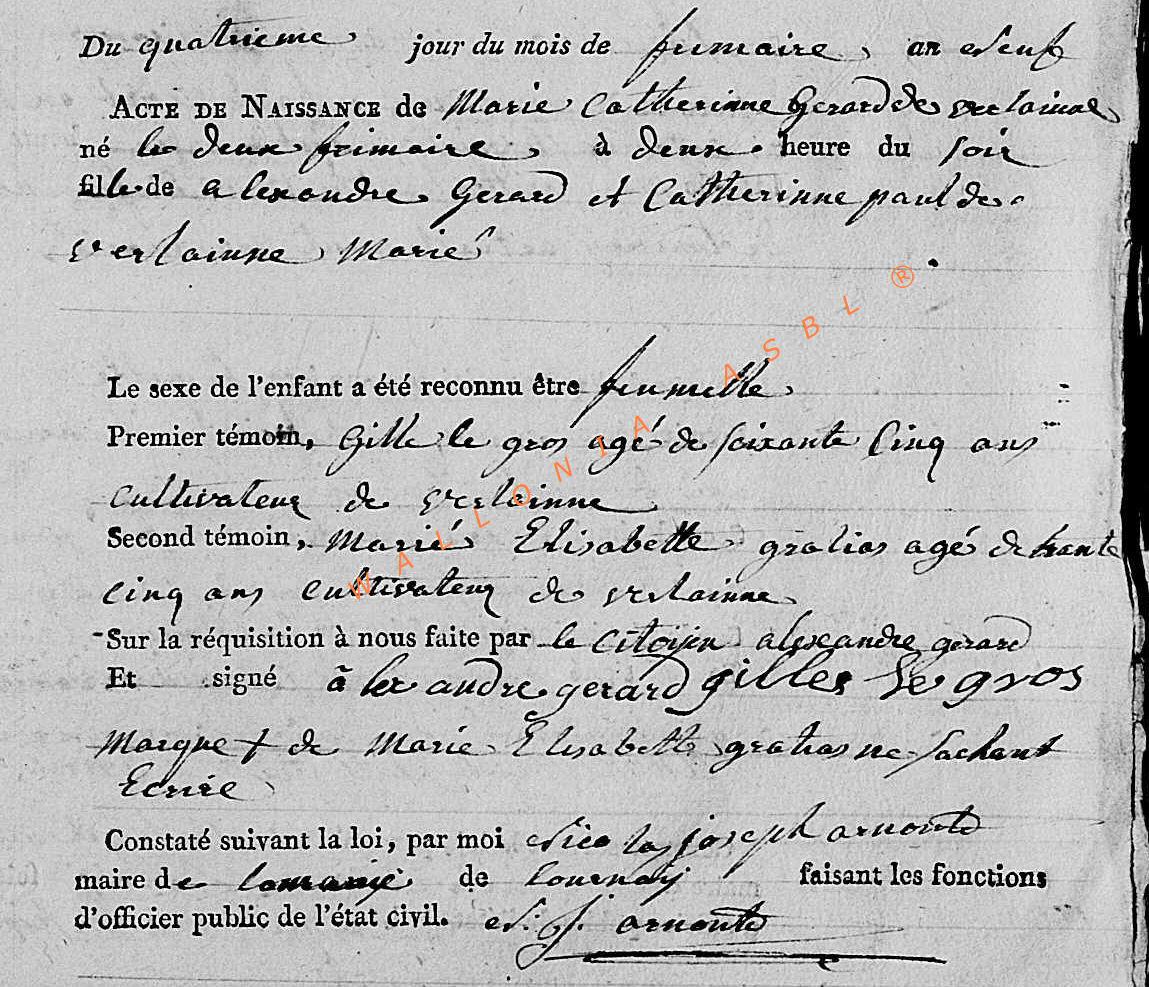 Du quatrieme jour du mois de frimaire, an Neuf
ACTE DE NAISSANCE de Marie Catherinne Gerard de verlainne
né le deux frimaire, à deux heure du soir
fille de alexandre Gerard et Catherinne paul de
verlainne Marié
Le sexe de l'enfant a été reconnu être fumelle
Premier témoin, Gille le gros agé de soixante Cinq ans
Cultivateur de verlainne
Second témoin, Marie Elisabette gratias agé de trante
cinq ans Cultivateur de verlainne
Sur la réquisition à nous faite par le Citoijen alexandre gerard
Et signé alexandre gerard gilles Le gros
Marque + de Marie Elisabette gratias ne sachant
Ecrire
Constaté suivant la loi, par moi Nicolas joseph arnould
maire de de tournaij faisant les fonctions
d'officier public de l'état civil. N: J. arnould
WALLONIA ASBL ®